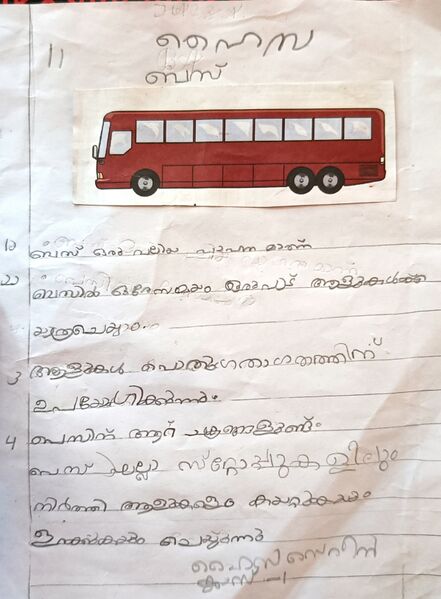 ഫൈസ
11
ബസ്
1) ബസ് ഒരു വലിയ വാഹന മാണ്
2) ബസിൽ ഒരേസമയം ഒരുപാട് ആളുകൾക്ക്
യാത്രചെയ്യാം.
3 ആളുകൾ പൊതുഗതാഗതത്തിന്
ഉപയോഗിക്കുന്നു.
4 ബസിന് ആറ് ചക്രങ്ങളുണ്ട്
ബസ് എല്ലാ സ്റ്റോപ്പുകളിലും
നിർത്തി ആളുകളെ കയറ്റുകയും
ഇറക്കുകയും ചെയ്യുന്നു
ക്ലാസ് -1